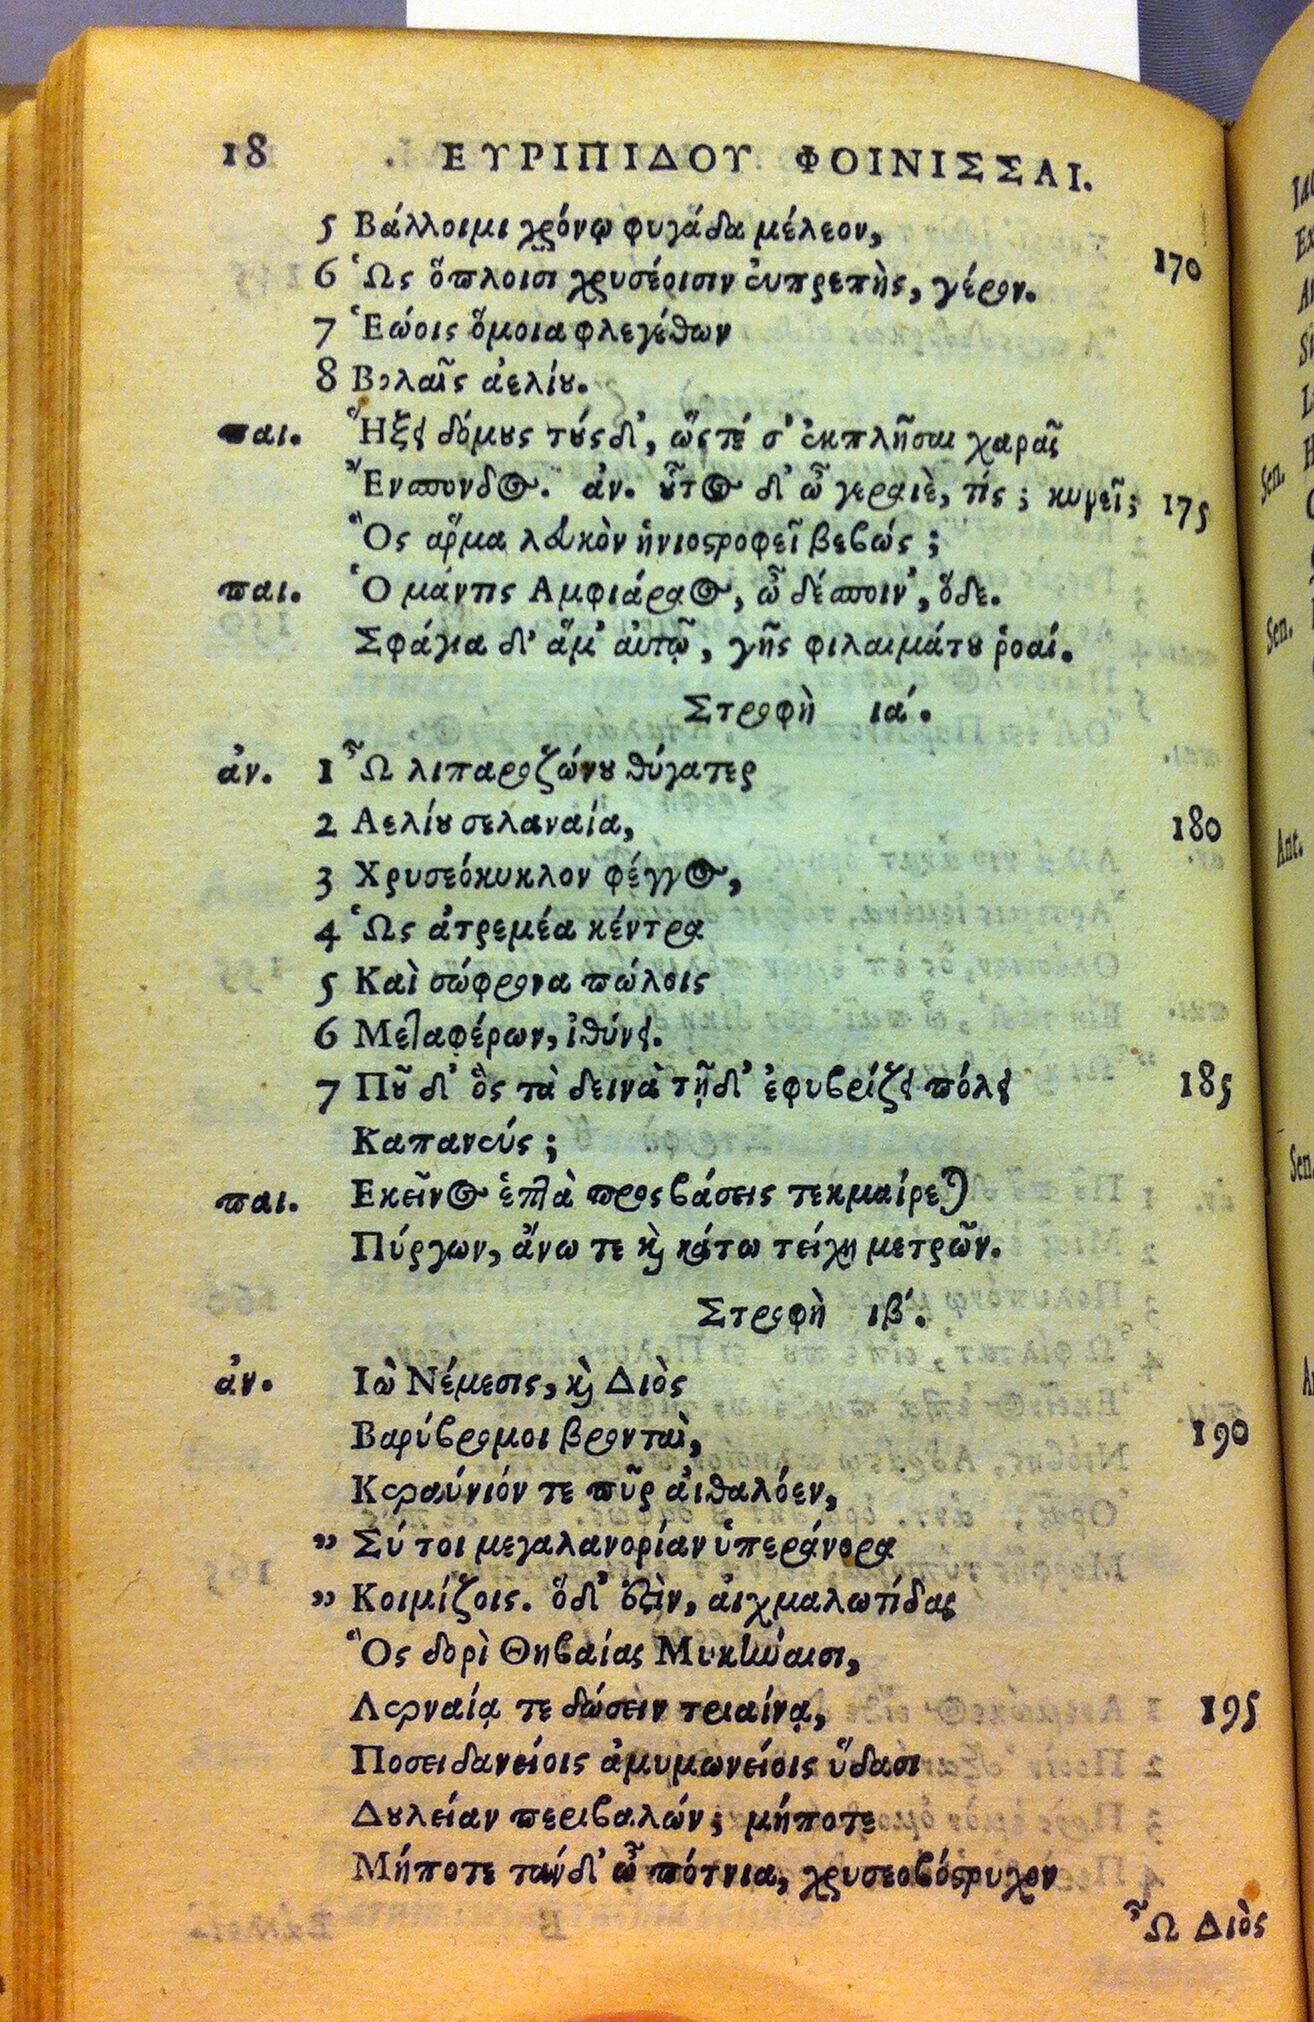 18 ΕΥΡΙΠΙΔΟΥ ΦΟΙΝΙΣΣΑΙ.
5 Βάλλοιμι χρόνῳ φυγάδα μέλεον,
6 Ὡς ὅπλοισι χρυσέοισιν εὐπρεπὴς, γέρον. 170
7 Ἑώοις ὅμοια φλεγέθων
8 Βολαῖς ἀελίου.
παι. Ἥξει δόμους τούςδ', ὥςτέ σ' ἐκπλῆσαι χαρᾶς
Ἔνσπονδος. ἀν. οὗτος δ' ὦ γεραιὲ, τίς; κυρεῖ; 175
Ὃς ἅρμα λευκὸν ἡνιοστροφεῖ βεβώς;
παι. Ὁ μάντις Αμφιάραος, ὦ δέσποιν', ὅδε.
Σφάγια δ' ἅμ' αὐτῷ, γῆς φιλαιμάτου ῥοαί.
Στροφὴ ια΄.
ἀν. 1 Ὦ λιπαροζώνου θύγατερ
2 Αελίου σελαναία, 180
3 Χρυσεόκυκλον φέγγος,
4 Ὡς ἀτρεμέα κέντρα
5 Καὶ σώφρονα πώλοις
6 Μεταφέρων, ἰθύνει.
7 Ποῦ δ' ὃς τὰ δεινὰ τῇδ' ἐφυβρίζει πόλει 185
Καπανεύς;
παι. Εκεῖνος ἑπτὰ προςβάσεις τεκμαίρεται
Πύργων, ἄνω τε καὶ κάτω τείχη μετρῶν.
Στροφὴ ιβ΄.
ἀν. Ιὼ Νέμεσις, καὶ Διὸς
Βαρύβρομοι βρονταὶ, 190
Κεραύνιόν τε πῦρ αἰθαλόεν,
" Σύ τοι μεγαλανορίαν ὑπεράνορα
" Κοιμίζοις. ὅδ' ἐστὶν, αἰχμαλωτίδας
Ὃς δορὶ Θηβαίας Μυκήναισι,
Λερναίᾳ τε δώσειν τριαίνᾳ, 195
Ποσειδανείοις ἀμυμωνείοις ὕδασι
Δουλείαν περιβαλών; μήποτε
Μήποτε τάνδ' ὦ πότνια, χρυσεοβόστρυχον
Ὦ Διὸς